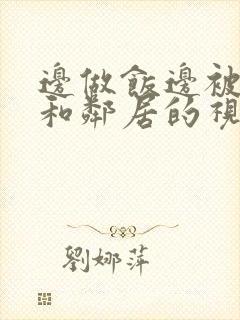 邊做飯邊被
和鄰居的視
劉娜萍